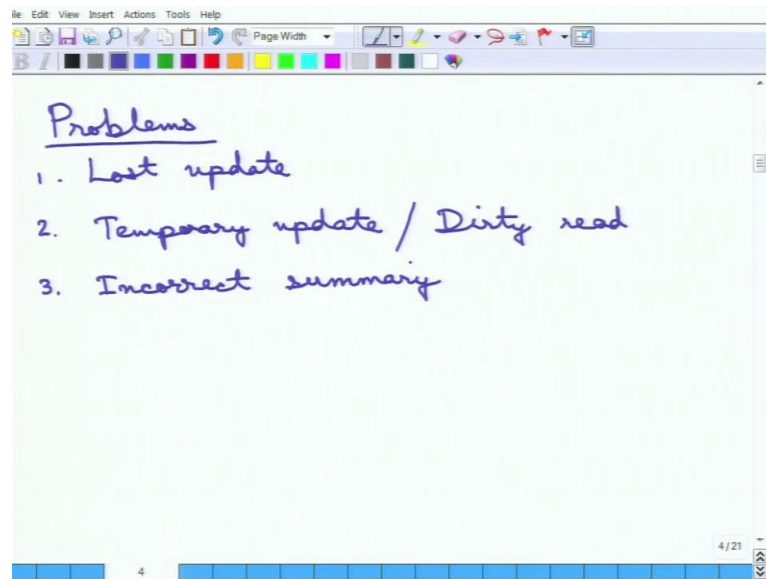 ile Edit View Insert Actions Tools Help
Page Width
B I
Problems
1. Lost update
2. Temporary update / Dirty read
3. Incorrect summary
4/21
4